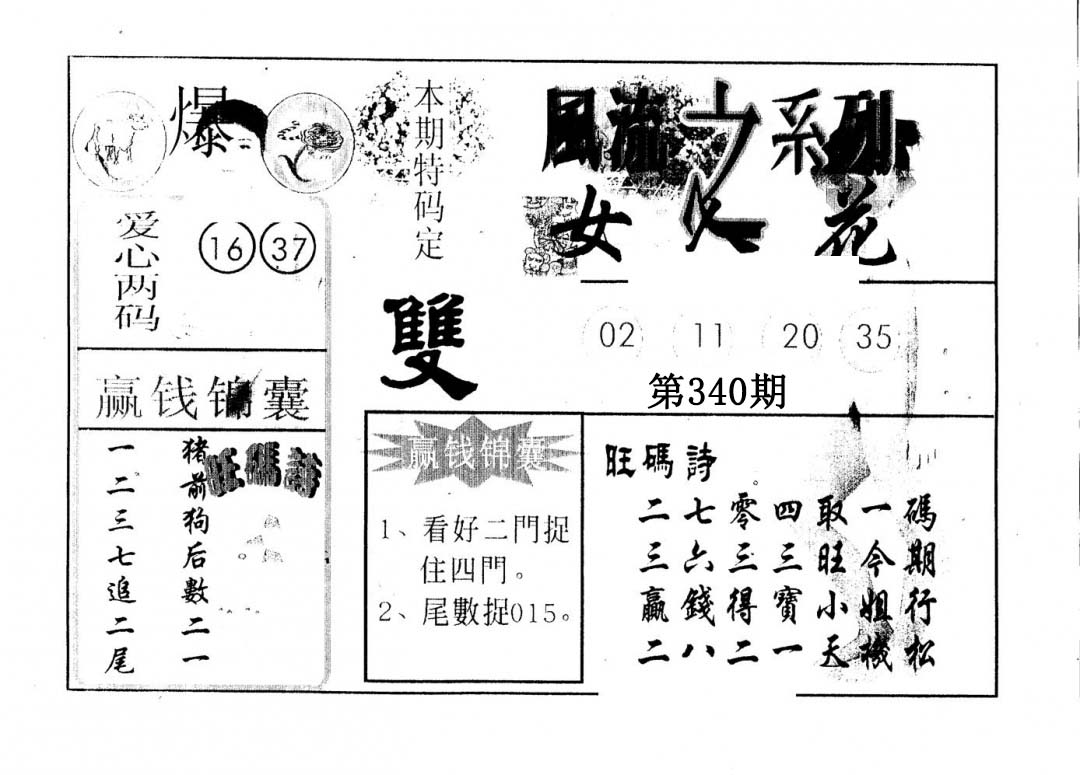 爆
本期特码定
雙
風流之系列
女人花
爱心两码
16 37
02 11 20 35
第340期
赢钱锦囊
一二三七追二尾
猪前狗后數二一
旺碼詩
赢钱锦囊
1、看好二門捉
住四門。
2、尾數捉015。
旺碼詩
二七零四取一碼
三六三三旺今期
贏錢得寶小姐行
二八二一天機松